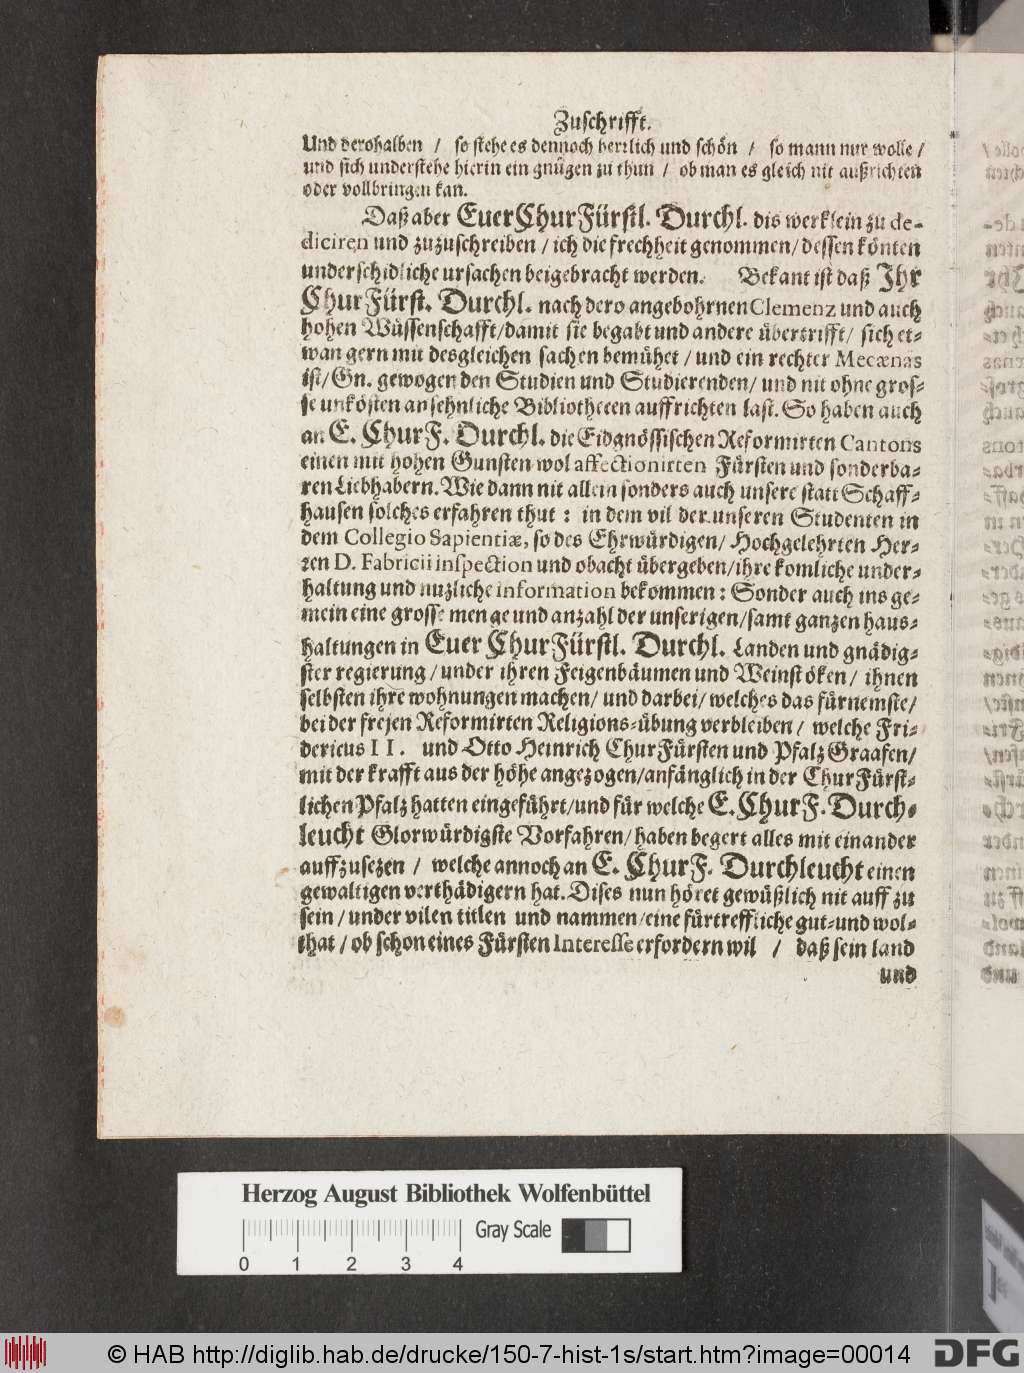 Zuschrifft.
Und derohalben / so stehe es dennoch herrlich und schön / so mann nur wolle /
und sich understehe hierin ein gnügen zu thun / ob man es gleich nit außrichten
oder vollbringen kan.
Daß aber Euer ChurFürstl. Durchl. dis werklein zu de-
diciren und zuzuschreiben / ich die frechheit genommen / dessen könten
underschidliche ursachen beigebracht werden. Bekant ist daß Ihr
ChurFürst. Durchl. nach dero angebohrnen Clemenz und auch
hohen Wüssenschafft / damit sie begabt und andere übertrifft / sich et-
wan gern mit desgleichen sachen bemühet / und ein rechter Mecænas
ist / Gn. gewogen den Studien und Studierenden / und nit ohne gros-
se unkösten ansehnliche Bibliothecen auffrichten last. So haben auch
an E. ChurF. Durchl. die Eidgnössischen Reformirten Cantons
einen mit hohen Gunsten wol affectionirten Fürsten und sonderba-
ren Liebhabern. Wie dann nit allein sonders auch unsere statt Schaff-
hausen solches erfahren thut : in dem vil der unseren Studenten in
dem Collegio Sapientiæ, so des Ehrwürdigen / Hochgelehrten Her-
ren D. Fabricii inspection und obacht übergeben / ihre komliche under-
haltung und nuzliche information bekommen : Sonder auch ins ge-
mein eine grosse menge und anzahl der unserigen / samt ganzen haus-
haltungen in Euer ChurFürstl. Durchl. Landen und gnädig-
ster regierung / under ihren Feigenbäumen und Weinstöken / ihnen
selbsten ihre wohnungen machen / und darbei / welches das fürnemste /
bei der freien Reformirten Religions-übung verbleiben / welche Fri-
dericus II. und Otto Heinrich ChurFürsten und Pfalz Graafen /
mit der krafft aus der höhe angezogen / anfänglich in der ChurFürst-
lichen Pfalz hatten eingeführt / und für welche E. ChurF. Durch-
leucht Glorwürdigste Vorfahren / haben begert alles mit einander
auffzusezen / welche annoch an E. ChurF. Durchleucht einen
gewaltigen verthädigern hat. Dises nun höret gewüßlich nit auff zu
sein / under vilen titlen und nammen / eine fürtreffliche gut- und wol-
that / ob schon eines Fürsten Interesse erfordern wil / daß sein land
und
Herzog August Bibliothek Wolfenbüttel
Gray Scale
0 1 2 3 4
© HAB http://diglib.hab.de/drucke/150-7-hist-1s/start.htm?image=00014
DFG